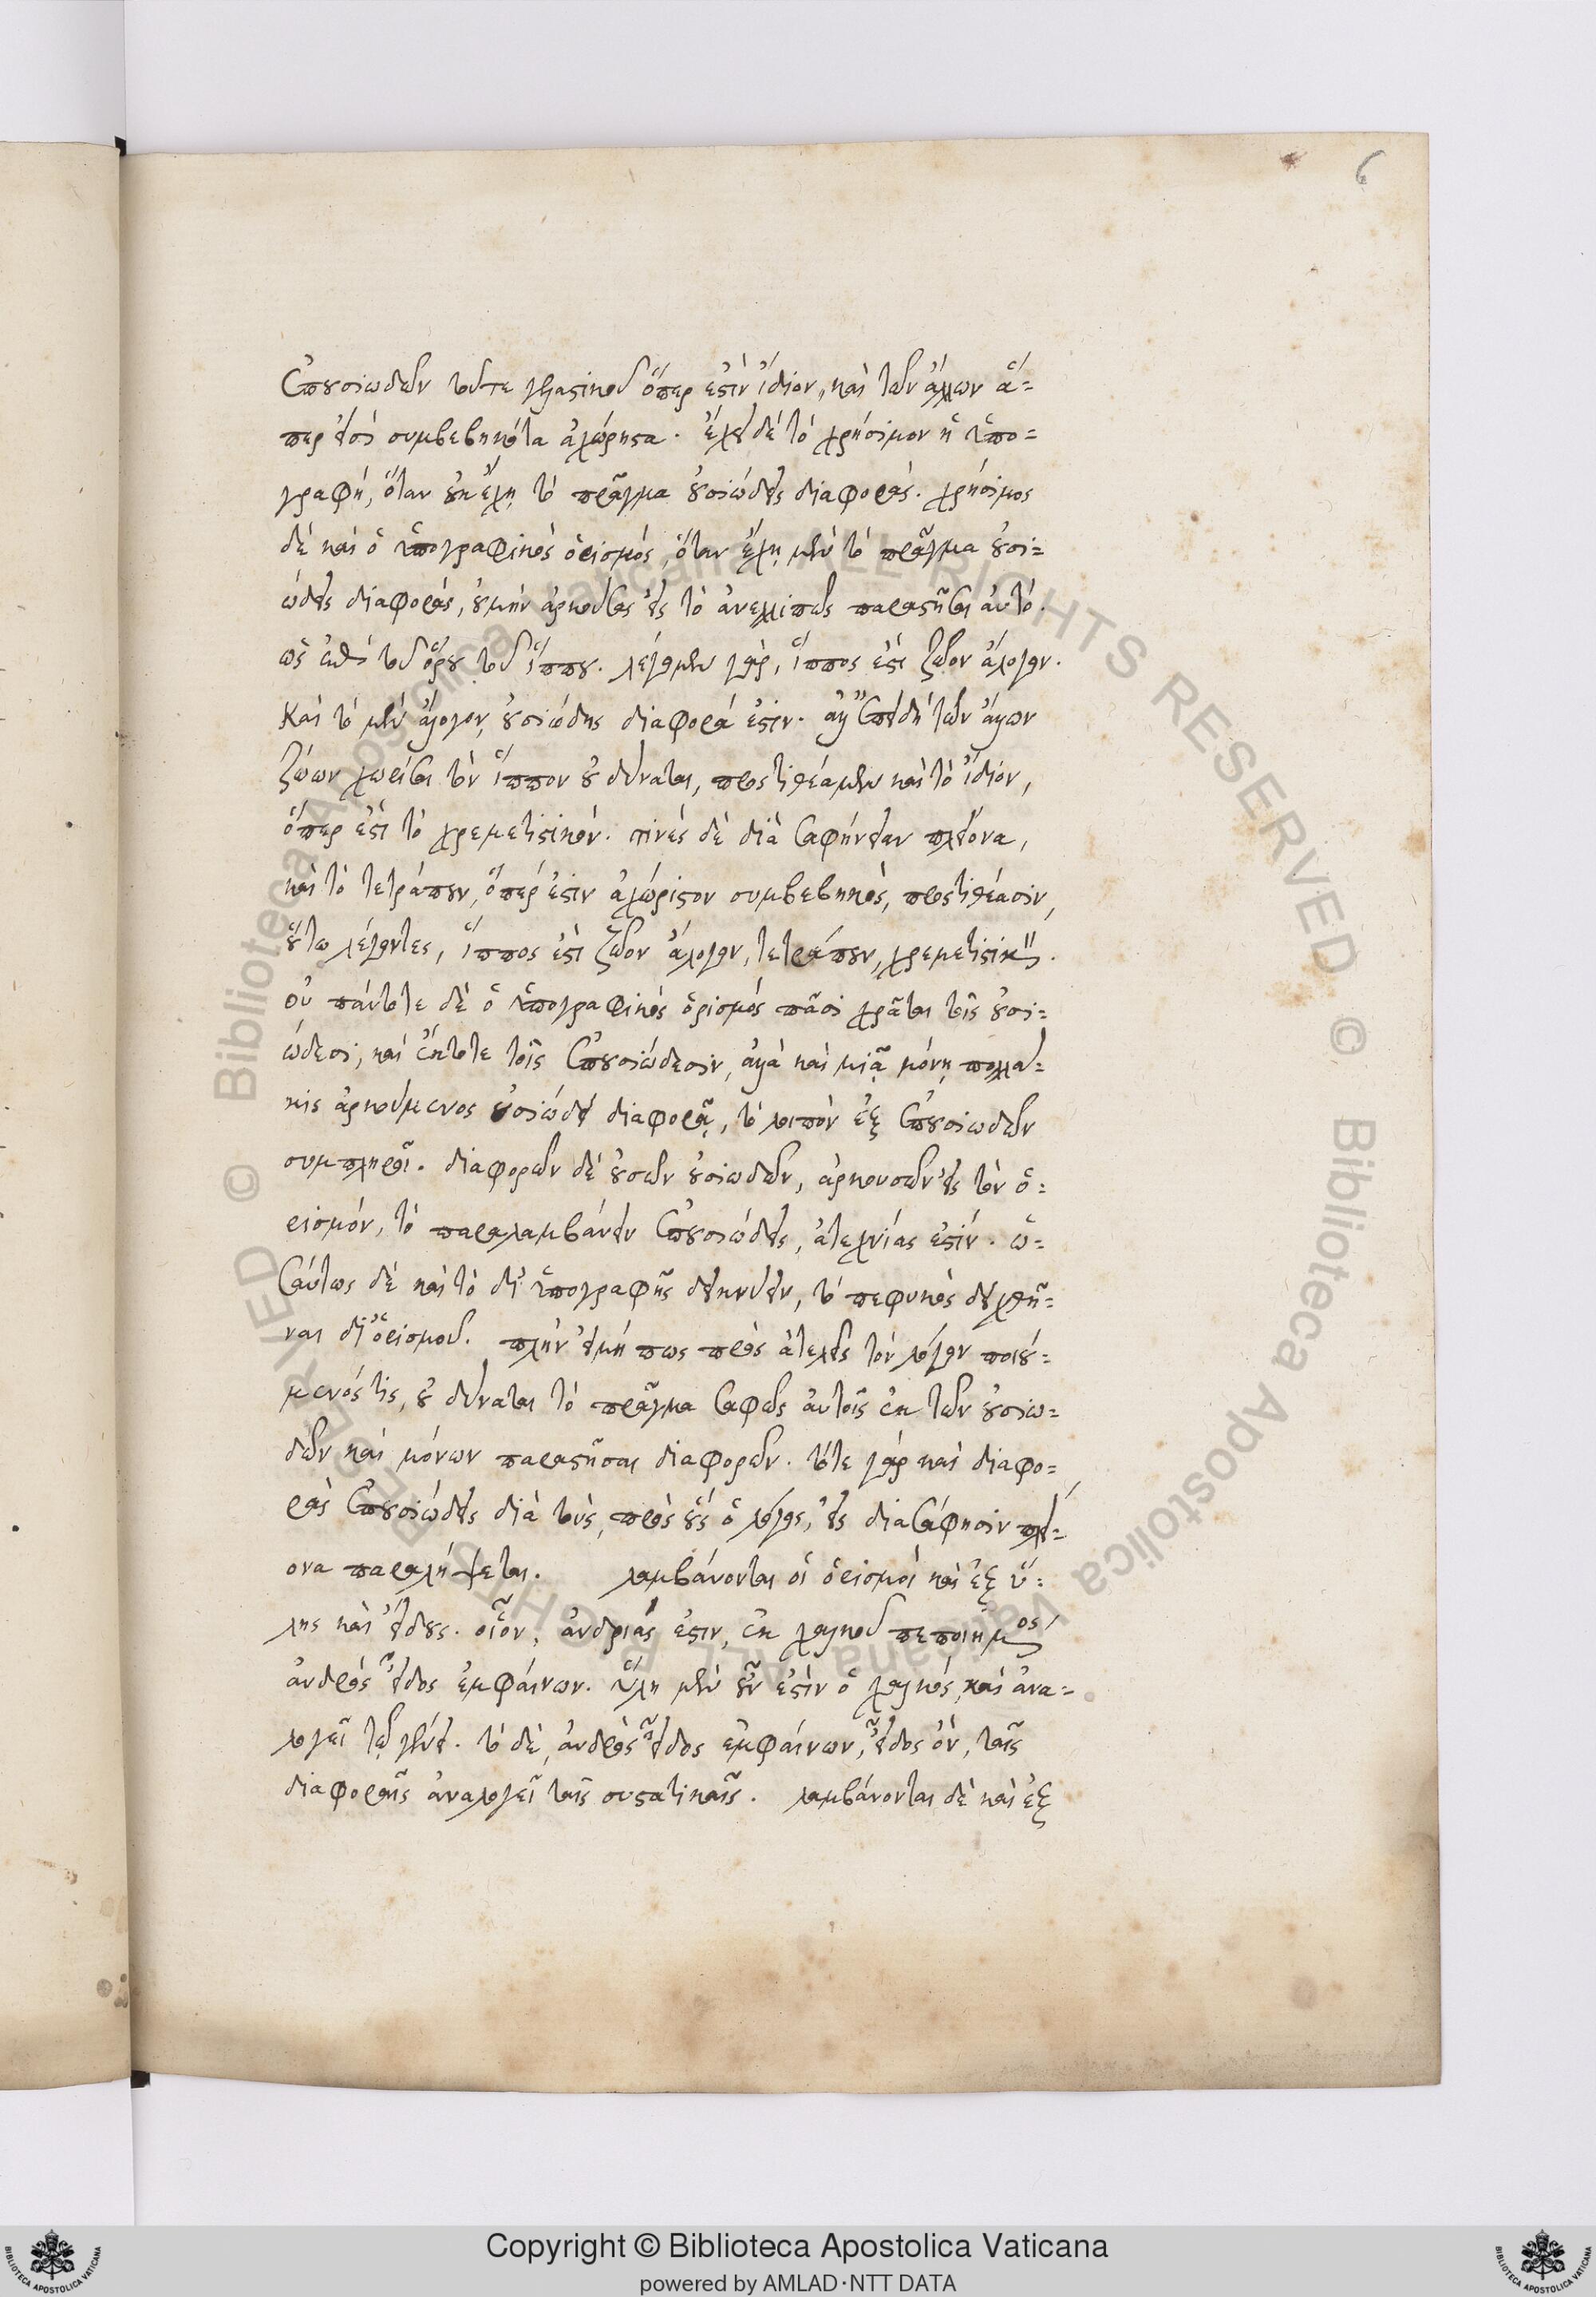 6
ἐπουσιωδῶν τοῦτε γελαστικοῦ ὅπερ ἐστὶν ἴδιον, καὶ τῶν ἄλλων ἅ=
περ εἰσὶ συμβεβηκότα ἀχώριστα. ἔχει δὲ τὸ χρήσιμον ἡ ὑπο=
γραφή, ὅταν οὐκ ἔχῃ τὸ πρᾶγμα οὐσιώδεις διαφοράς. χρήσιμος
δὲ καὶ ὁ ὑπογραφικὸς ὁρισμός, ὅταν ἔχῃ μὲν τὸ πρᾶγμα οὐσι=
ώδεις διαφοράς, οὐ μὴν ἀρκούσας εἰς τὸ ἀνελλιπῶς παραστῆσαι αὐτό.
ὡς ἐπὶ τοῦ ὅρου τοῦ ἵππου. λέγομεν γάρ, ἵππος ἐστὶ ζῶον ἄλογον.
Καὶ τὸ μὲν ἄλογον, οὐσιώδης διαφορά ἐστιν. ἀλλ' ἐπειδὴ τῶν ἄλλων
ζώων χωρίσαι τὸν ἵππον οὐ δύναται, προστιθέαμεν καὶ τὸ ἴδιον,
ὅπερ ἐστὶ τὸ χρεμετιστικόν. τινὲς δὲ διὰ σαφήνειαν πλείονα,
καὶ τὸ τετράπουν, ὅπέρ ἐστιν ἀχώριστον συμβεβηκός, προστιθέασιν,
οὕτω λέγοντες, ἵππος ἐστὶ ζῶον ἄλογον, τετράπουν, χρεμετιστικόν.
οὐ πάντοτε δὲ ὁ ὑπογραφικὸς ὁρισμὸς πᾶσι χρᾶται τοῖς οὐσι=
ώδεσι, καὶ ἔκτοτε τοῖς ἐπουσιώδεσιν, ἀλλὰ καὶ μιᾷ μόνῃ πολλά=
κις ἀρκούμενος οὐσιώδει διαφορᾷ, τὸ λοιπὸν ἐξ ἐπουσιωδῶν
συμπληροῖ. διαφορῶν δὲ οὐσῶν οὐσιωδῶν, ἀρκουσῶν εἰς τὸν ὁ=
ρισμόν, τὸ παραλαμβάνειν ἐπουσιώδεις, ἀτεχνίας ἐστίν. ὡ=
σαύτως δὲ καὶ τὸ δι' ὑπογραφῆς δεικνύειν, τὸ πεφυκὸς δειχθῆ=
ναι δι' ὁρισμοῦ. πλὴν εἰμή πως πρὸς ἀτελεῖς τὸν λόγον ποιού=
μενός τις, οὐ δύναται τὸ πρᾶγμα σαφῶς αὐτοῖς ἐκ τῶν οὐσιω=
δῶν καὶ μόνων παραστῆσαι διαφορῶν. τότε γὰρ καὶ διαφο=
ρὰς ἐπουσιώδεις διὰ τοὺς, πρὸς οὓς ὁ λόγος, εἰς διασάφησιν πλεί=
ονα παραλήψεται. λαμβάνονται οἱ ὁρισμοὶ καὶ ἐξ ὕ=
λης καὶ εἴδους. οἷον, ἀνδριάς ἐστιν, ἐκ χαλκοῦ πεποιημένος
ἀνδρὸς εἶδος ἐμφαίνων. ὕλη μὲν οὖν ἐστὶν ὁ χαλκός, καὶ ἀνα=
λογεῖ τῷ γένει. τὸ δὲ, ἀνδρὸς εἶδος ἐμφαίνων, εἶδος ὄν, ταῖς
διαφοραῖς ἀναλογεῖ ταῖς συστατικαῖς. λαμβάνονται δὲ καὶ ἐξ
Copyright © Biblioteca Apostolica Vaticana
powered by AMLAD·NTT DATA